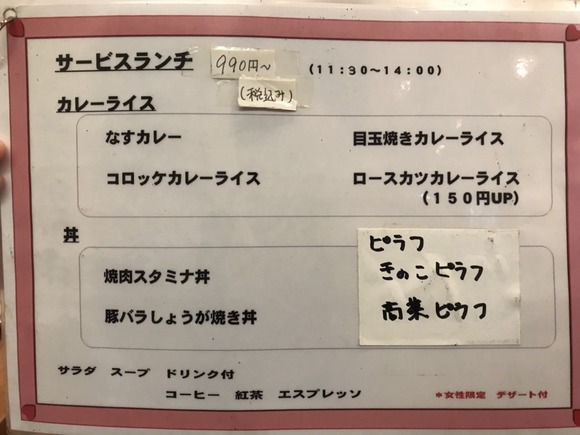 サービスランチ 990円〜 (11:30〜14:00)
(税込み)
カレーライス
なすカレー 目玉焼きカレーライス
コロッケカレーライス ロースカツカレーライス
(150円UP)
丼
焼肉スタミナ丼
豚バラしょうが焼き丼
ピラフ
きのこピラフ
高菜ピラフ
サラダ スープ ドリンク付
コーヒー 紅茶 エスプレッソ
*女性限定 デザート付